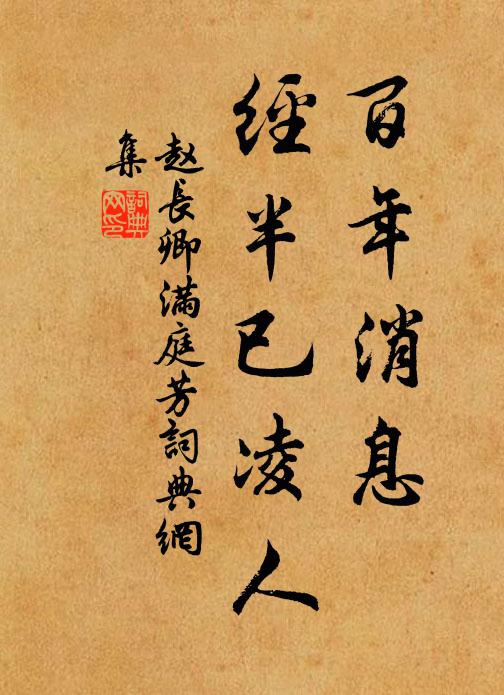 百年消息
經半已凌人
赵長卿滿庭芳詞典網
集
詞典
网印